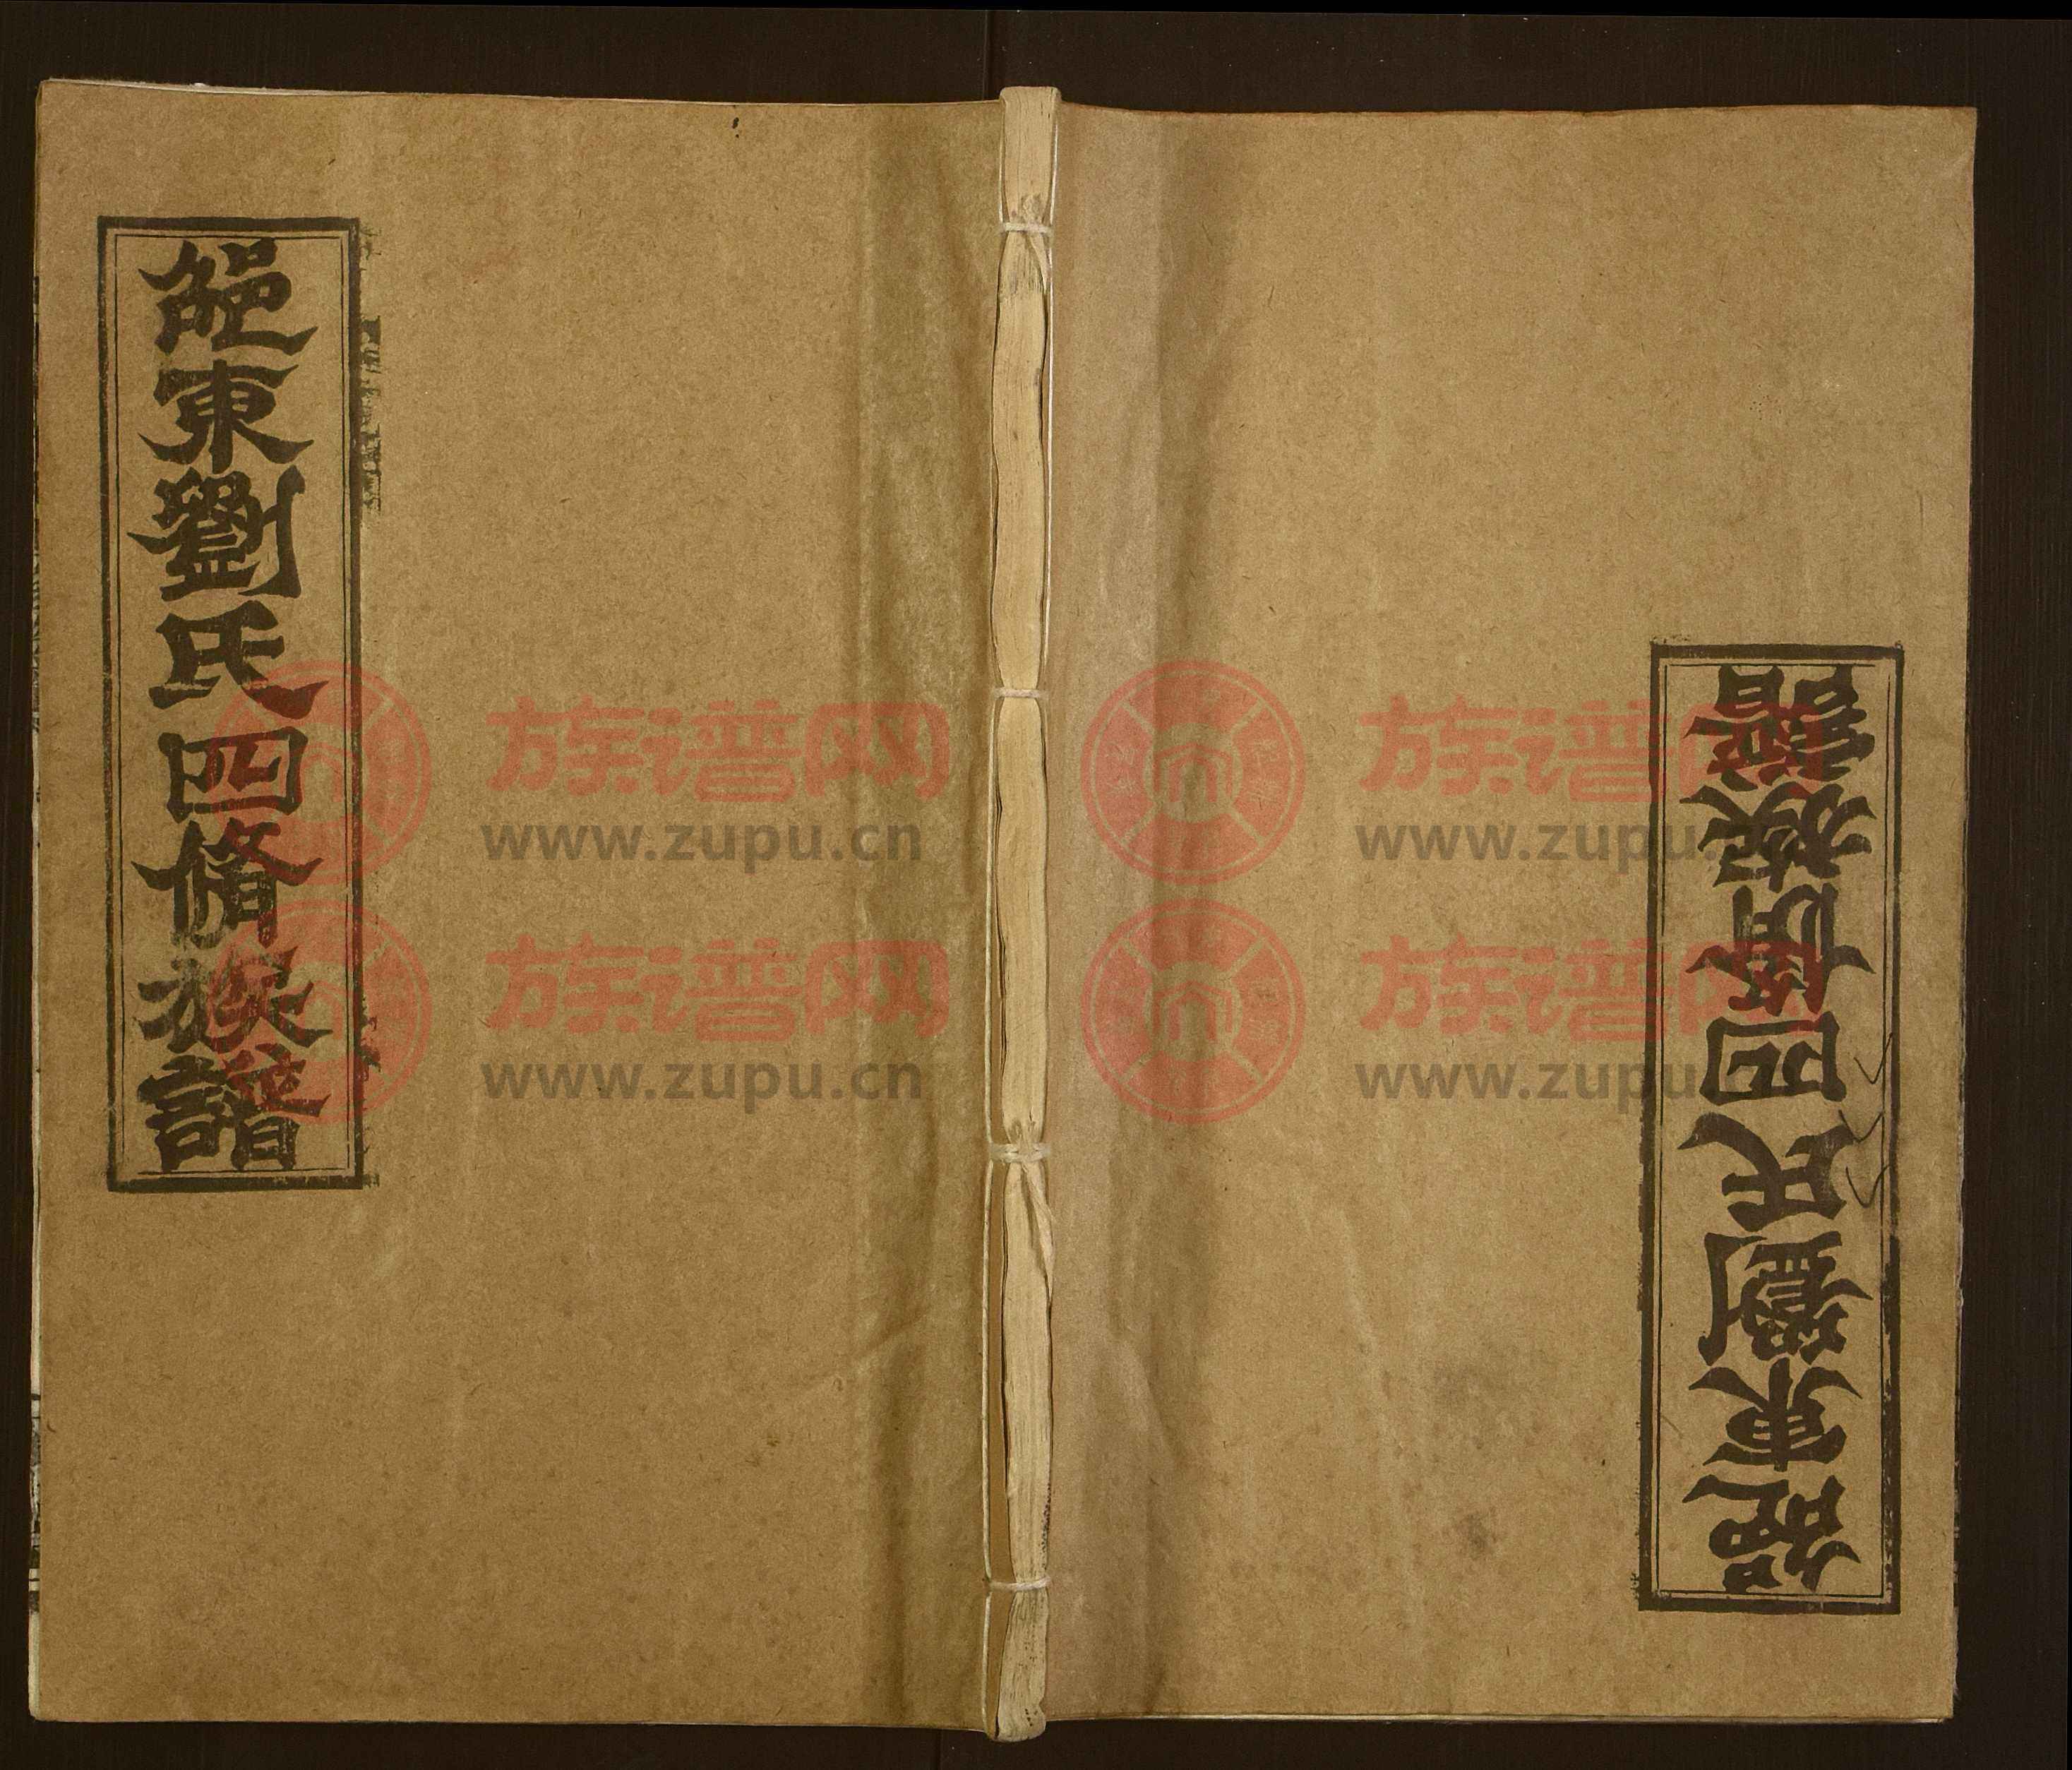 邵東劉氏四脩族譜
邵東劉氏四脩族譜
族谱网
www.zupu.cn
族谱网
www.zupu.cn
族谱网
www.zupu.cn
族谱网
www.zupu.cn